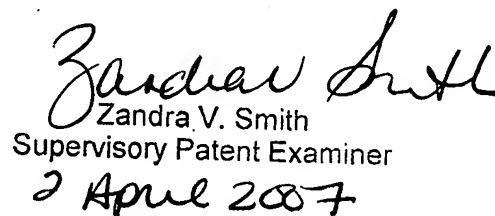 Zandra V. Smith
Zandra V. Smith
Supervisory Patent Examiner
2 April 2007